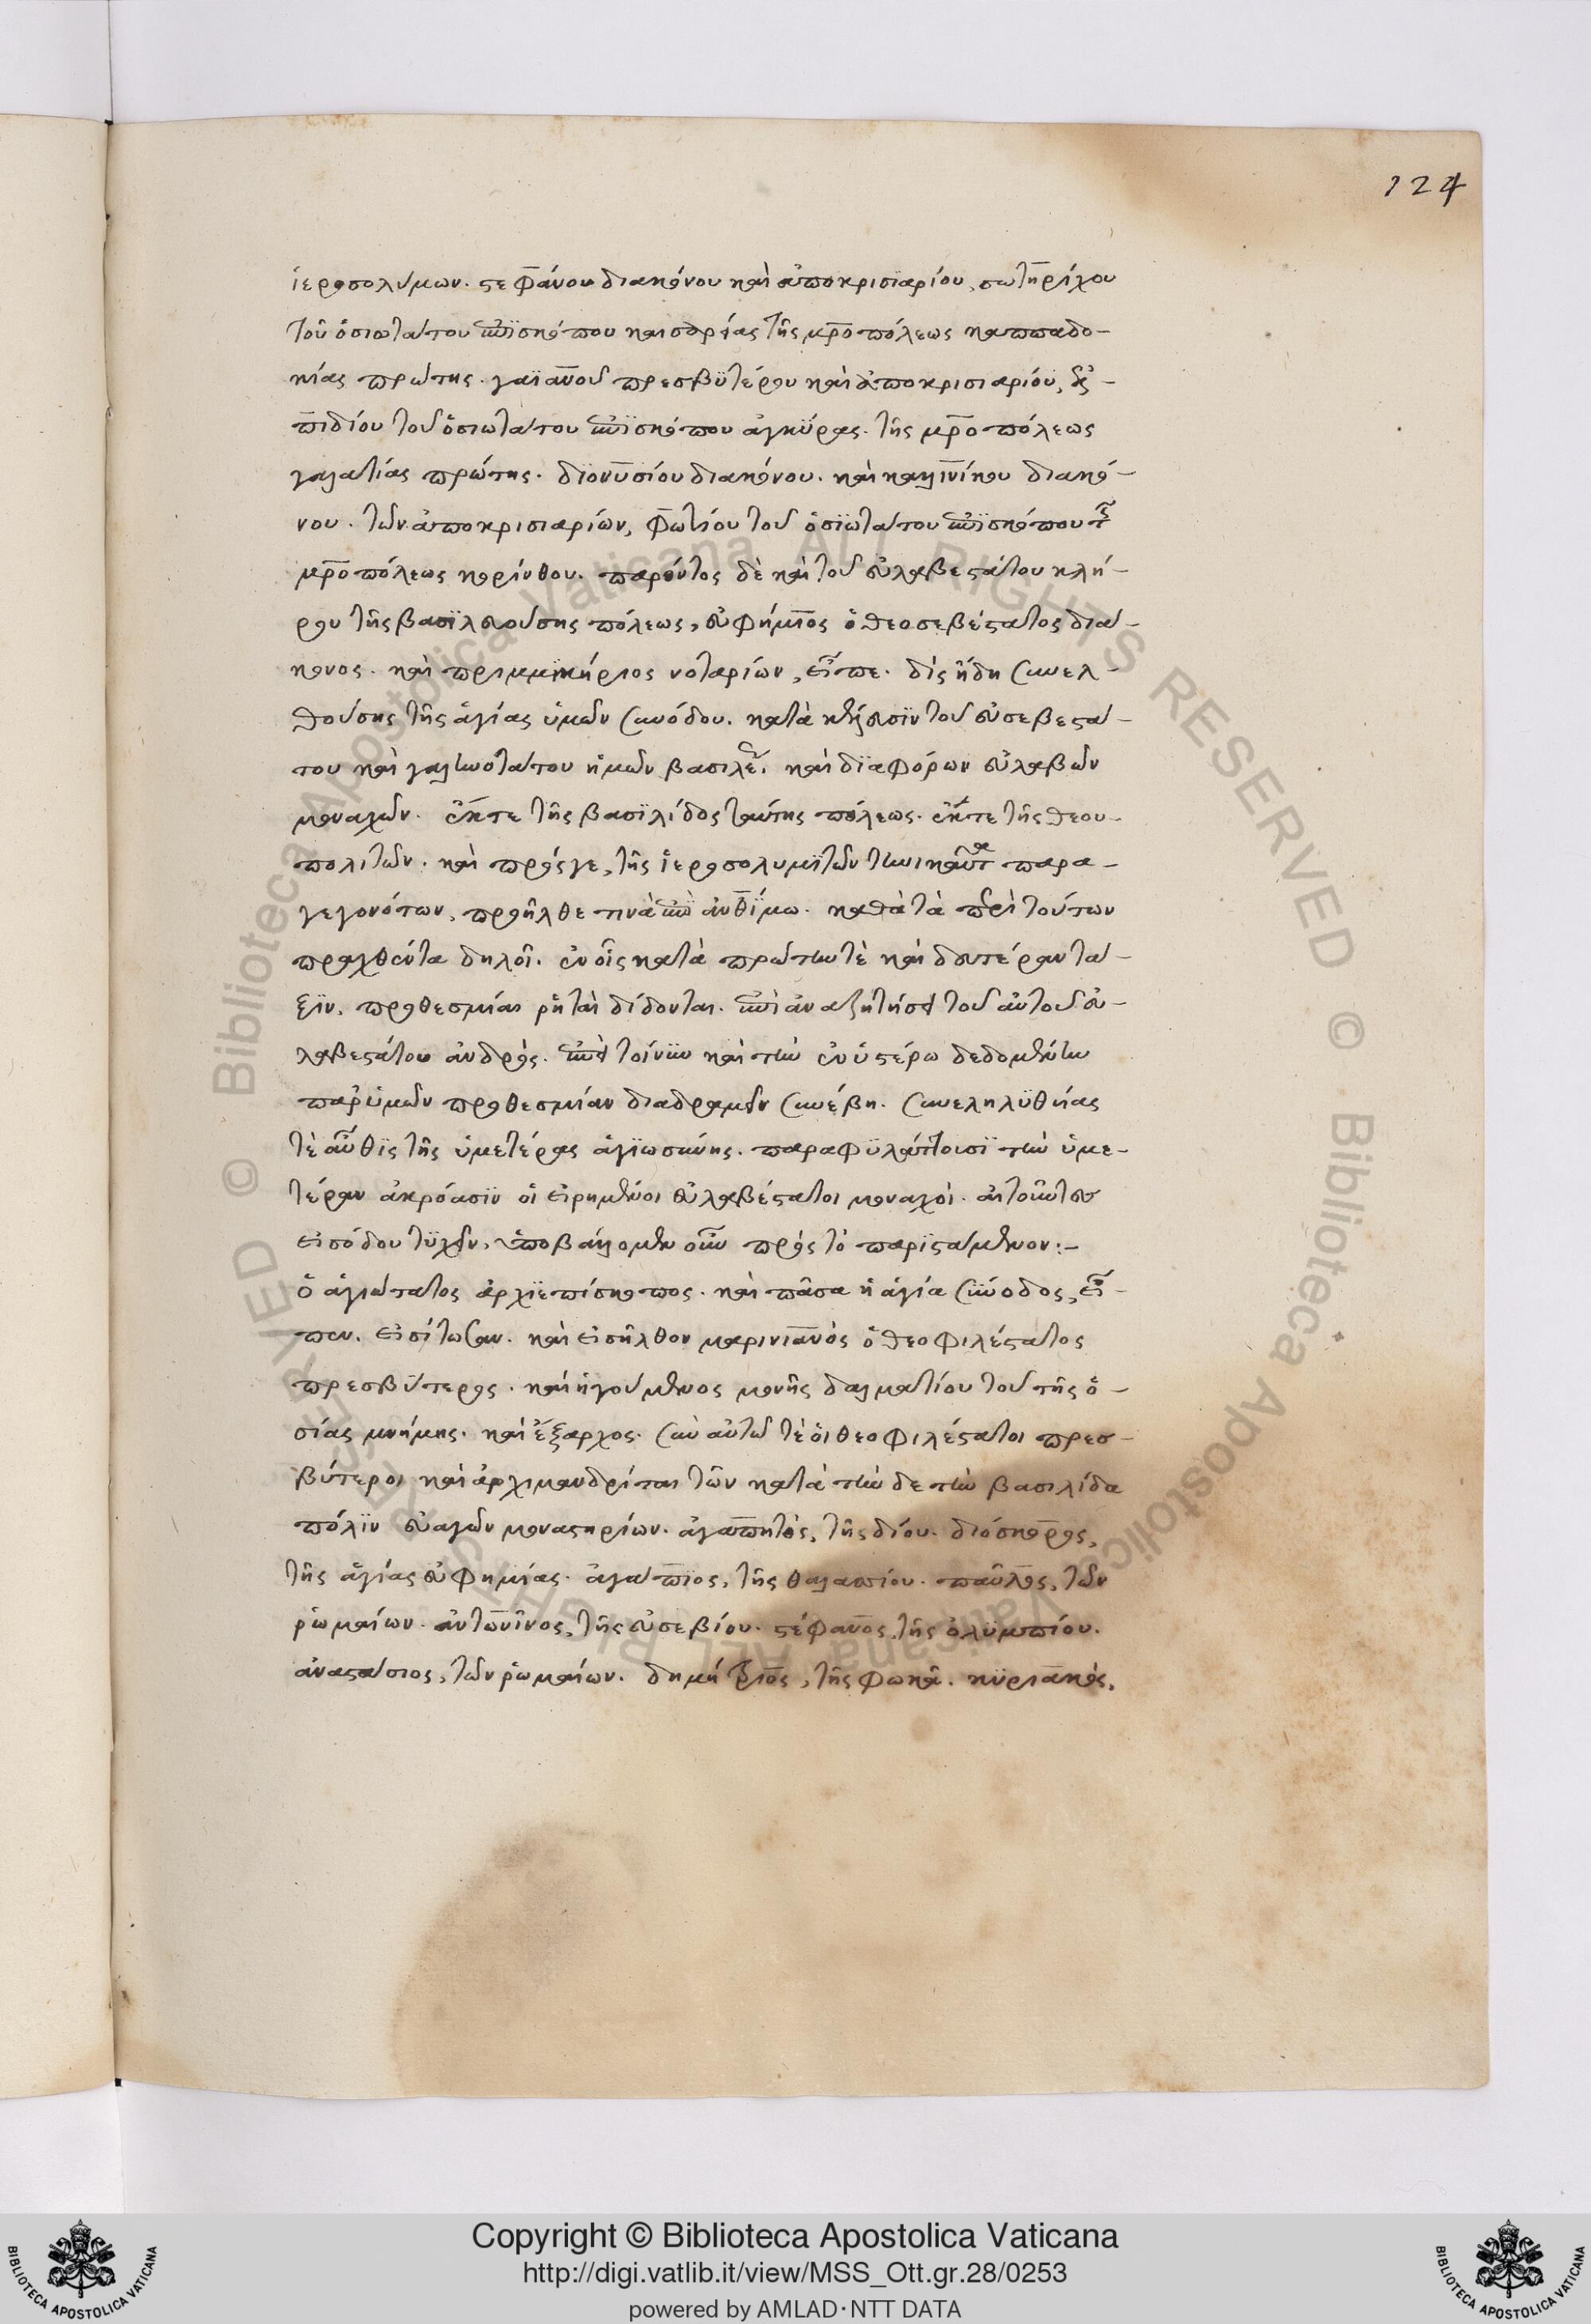 124
ἱεροσολύμων. στεφάνου διακόνου καὶ ἀποκρισιαρίου, σωτηρίχου
τοῦ ὁσιωτάτου ἐπϊσκόπου καισαρείας τῆς μρ̅οπόλεως καππαδο-
κίας πρώτης. γαϊανοῦ πρεσβϋτέρου καὶ ἀποκρισιαρίου, ἐλ-
πιδίου τοῦ ὁσιωτάτου ἐπϊσκόπου ἀγκύρας. τῆς μρ̅οπόλεως
γαλατίας πρώτης. διονυσίου διακόνου. καὶ καλινίκου διακό-
νου. τῶν ἀποκρισιαρίων, φωτίου τοῦ ὁσϊωτάτου ἐπϊσκόπου τῆς
μρ̅οπόλεως κορίνθου. παρόντος δὲ καὶ τοῦ εὐλαβεστάτου κλή-
ρου τῆς βασϊλευούσης πόλεως, εὐφήμιος ὁ θεοσεβέστατος διά-
κονος. καὶ πριμμικήριος νοταρίων, εἶπε. δὶς ἤδη συνελ-
θούσης τῆς ἁγίας ὑμῶν συνόδου. κατὰ κέλευσϊν τοῦ εὐσεβεστά-
του καὶ γαληνοτάτου ἡμῶν βασιλέως. καὶ δϊαφόρων εὐλαβῶν
μοναχῶν. ἔκ τε τῆς βασϊλίδος ταύτης πόλεως. ἔκ τε τῆς θεου-
πολιτῶν. καὶ πρός γε, τῆς ἱεροσολυμϊτῶν τηνικαῦτα παρα-
γεγονότων, προῆλθε τινὰ ἐπὶ ἀνθΐμω. καθὰ τὰ περὶ τούτων
πραχθέντα δηλοῖ. ἐν οἷς κατὰ πρώτην τὲ καὶ δευτέραν τά-
ξϊν, προθεσμίαι ῥηταὶ δίδονται. ἐπὶ ἀναζητήσει τοῦ αὐτοῦ εὐ-
λαβεστάτου ἀνδρός. ἐπεὶ τοίνυν καὶ τὴν ἐν ὑστέρω δεδομένην
παρ' ὑμῶν προθεσμίαν διαδραμεῖν συνέβη. συνεληλϋθυίας
τὲ αὖθϊς τῆς ὑμετέρας ἁγϊωσύνης. παραφϋλάττουσϊ τὴν ὑμε-
τέραν ἀκρόασϊν οἱ εἰρημένοι εὐλαβέστατοι μοναχοὶ. αἰτοῦντες
εἰσόδου τϋχεῖν, ὑποβάλομεν οὖν πρὸς τὸ παρϊστάμενον:-
ὁ ἁγιώτατος ἀρχϊεπίσκοπος. καὶ πᾶσα ἡ ἁγία σύνοδος, εἶ-
πεν. εἰσίτωσαν. καὶ εἰσῆλθον μαρινιανὸς ὁ θεοφιλέστατος
πρεσβΰτερος. καὶ ἡγούμενος μονῆς δαλματίου τοῦ τῆς ὁ-
σίας μνήμης. καὶ ἔξαρχος. σὺν αὐτῶ τὲ οἱ θεοφιλέστατοι πρεσ-
βύτεροι καὶ ἀρχιμανδρίται τῶν κατὰ τήν δε τὴν βασιλίδα
πόλϊν εὐαγῶν μοναστηρίων. ἀγαπητὸς, τῆς δίου. διόσκορος,
τῆς ἁγίας εὐφημίας. ἀγάπϊος, τῆς θαλασίου. παῦλος, τῶν
ῥωμαίων. ἀντωνῖνος, τῆς εὐσεβίου. στέφανος, τῆς ὀλϋμπίου.
ἀναστάσιος, τῶν ῥωμαίων. δημήτριος, τῆς φωκᾶ. κϋριακὸς,
Copyright © Biblioteca Apostolica Vaticana
http://digi.vatlib.it/view/MSS_Ott.gr.28/0253
powered by AMLAD·NTT DATA